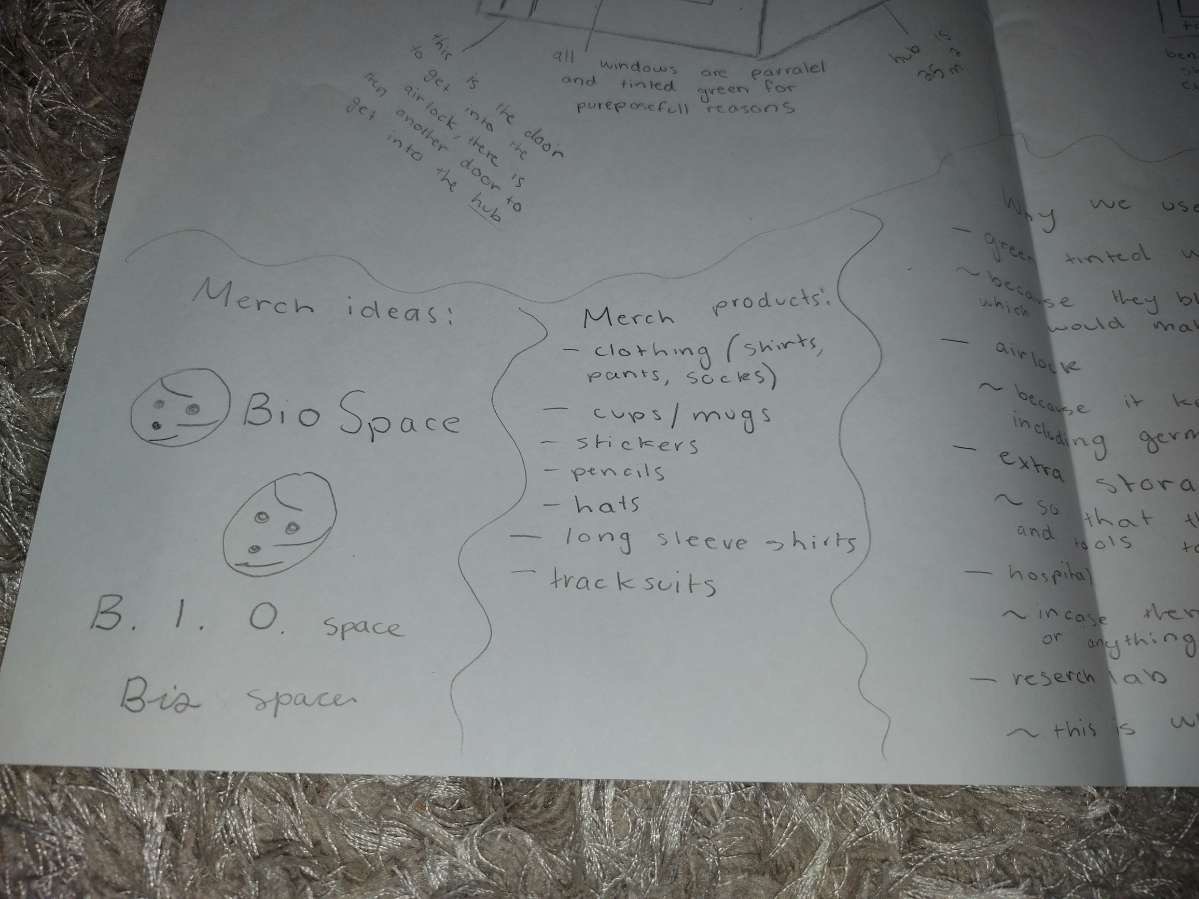 this is the door
to get into the
airlock, there is
then another door to
get into the hub
all windows are parralel
and tinted green for
pureposefull reasons
hub is
Merch ideas:
Bio Space
B. I. O. space
Bio space
Merch products:
- clothing (shirts,
pants, socks)
- cups/mugs
- stickers
- pencils
- hats
- long sleeve shirts
- tracksuits
Why we use
- green tinted w
~ because they bl
which would mak
- airlock
~ because it k
including germ
- extra stora
~ so that th
and tools to
- hospital
~ incase ther
or anything
- reserch lab
~ this is w